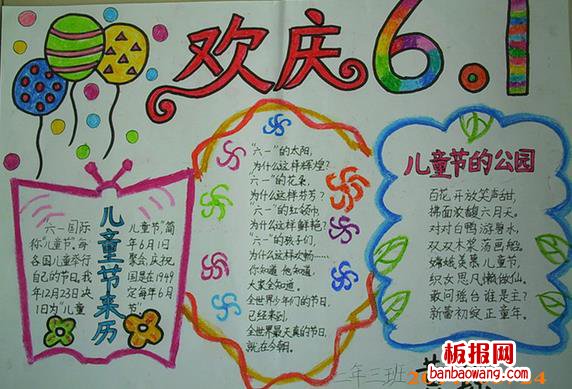 欢庆6.1
儿童节来历
"六一国际
你"儿童节"。每
各国儿童举行
自己的节日。我
年12月23日决
1日为"儿童
儿童节,简
年6月1日
聚会,庆祝
国是在1949
定每年6月
节"。
"六一"的太阳,
为什么这样辉煌?
"六一"的花朵,
为什么这样芬芳?
"六一"的红领巾,
为什么这样鲜艳?
"六一"的孩子们,
为什么这样欢畅……
你知道 他知道,
大家全知道
全世界少年们的节日,
已经来到
全世界最天真的节日,
就在今朝。
儿童节的公园
百花开放笑声甜,
拂面浓馥六月天。
对对白鸭游碧水,
双双木桨荡画船。
嫦娥羡慕儿童节,
织女思凡懒做仙。
敢问瑶台谁是主?
新蕾初绽正童年。
二年三班
板报网
banbaowang.com